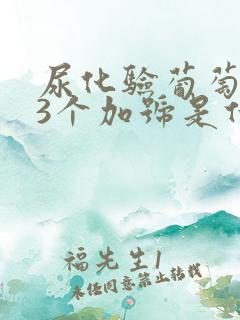 尿化验葡萄
3个加号是什
福先生1
未经同意禁止转载